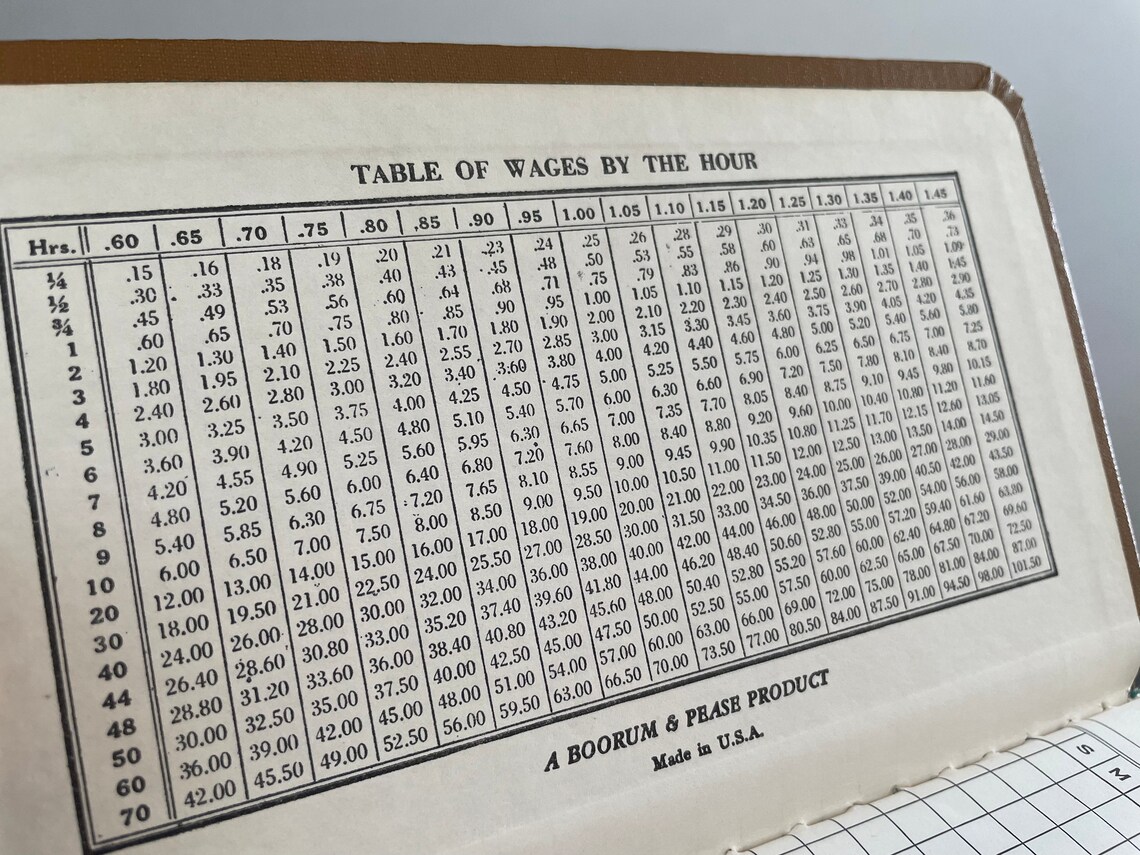 TABLE OF WAGES BY THE HOUR
Hrs. .60 .65 .70 .75 .80 .85 .90 .95 1.00 1.05 1.10 1.15 1.20 1.25 1.30 1.35 1.40 1.45
¼ .15 .16 .18 .19 .20 .21 .23 .24 .25 .26 .28 .29 .30 .31 .33 .34 .35 .36
½ .30 .33 .35 .38 .40 .43 .45 .48 .50 .53 .55 .58 .60 .63 .65 .68 .70 .73
¾ .45 .49 .53 .56 .60 .64 .68 .71 .75 .79 .83 .86 .90 .94 .98 1.01 1.05 1.09
1 .60 .65 .70 .75 .80 .85 .90 .95 1.00 1.05 1.10 1.15 1.20 1.25 1.30 1.35 1.40 1.45
2 1.20 1.30 1.40 1.50 1.60 1.70 1.80 1.90 2.00 2.10 2.20 2.30 2.40 2.50 2.60 2.70 2.80 2.90
3 1.80 1.95 2.10 2.25 2.40 2.55 2.70 2.85 3.00 3.15 3.30 3.45 3.60 3.75 3.90 4.05 4.20 4.35
4 2.40 2.60 2.80 3.00 3.20 3.40 3.60 3.80 4.00 4.20 4.40 4.60 4.80 5.00 5.20 5.40 5.60 5.80
5 3.00 3.25 3.50 3.75 4.00 4.25 4.50 4.75 5.00 5.25 5.50 5.75 6.00 6.25 6.50 6.75 7.00 7.25
6 3.60 3.90 4.20 4.50 4.80 5.10 5.40 5.70 6.00 6.30 6.60 6.90 7.20 7.50 7.80 8.10 8.40 8.70
7 4.20 4.55 4.90 5.25 5.60 5.95 6.30 6.65 7.00 7.35 7.70 8.05 8.40 8.75 9.10 9.45 9.80 10.15
8 4.80 5.20 5.60 6.00 6.40 6.80 7.20 7.60 8.00 8.40 8.80 9.20 9.60 10.00 10.40 10.80 11.20 11.60
9 5.40 5.85 6.30 6.75 7.20 7.65 8.10 8.55 9.00 9.45 9.90 10.35 10.80 11.25 11.70 12.15 12.60 13.05
10 6.00 6.50 7.00 7.50 8.00 8.50 9.00 9.50 10.00 10.50 11.00 11.50 12.00 12.50 13.00 13.50 14.00 14.50
20 12.00 13.00 14.00 15.00 16.00 17.00 18.00 19.00 20.00 21.00 22.00 23.00 24.00 25.00 26.00 27.00 28.00 29.00
30 18.00 19.50 21.00 22.50 24.00 25.50 27.00 28.50 30.00 31.50 33.00 34.50 36.00 37.50 39.00 40.50 42.00 43.50
40 24.00 26.00 28.00 30.00 32.00 34.00 36.00 38.00 40.00 42.00 44.00 46.00 48.00 50.00 52.00 54.00 56.00 58.00
44 26.40 28.60 30.80 33.00 35.20 37.40 39.60 41.80 44.00 46.20 48.40 50.60 52.80 55.00 57.20 59.40 61.60 63.80
48 28.80 31.20 33.60 36.00 38.40 40.80 43.20 45.60 48.00 50.40 52.80 55.20 57.60 60.00 62.40 64.80 67.20 69.60
50 30.00 32.50 35.00 37.50 40.00 42.50 45.00 47.50 50.00 52.50 55.00 57.50 60.00 62.50 65.00 67.50 70.00 72.50
60 36.00 39.00 42.00 45.00 48.00 51.00 54.00 57.00 60.00 63.00 66.00 69.00 72.00 75.00 78.00 81.00 84.00 87.00
70 42.00 45.50 49.00 52.50 56.00 59.50 63.00 66.50 70.00 73.50 77.00 80.50 84.00 87.50 91.00 94.50 98.00 101.50
A BOORUM & PEASE PRODUCT
Made in U.S.A.
S
M